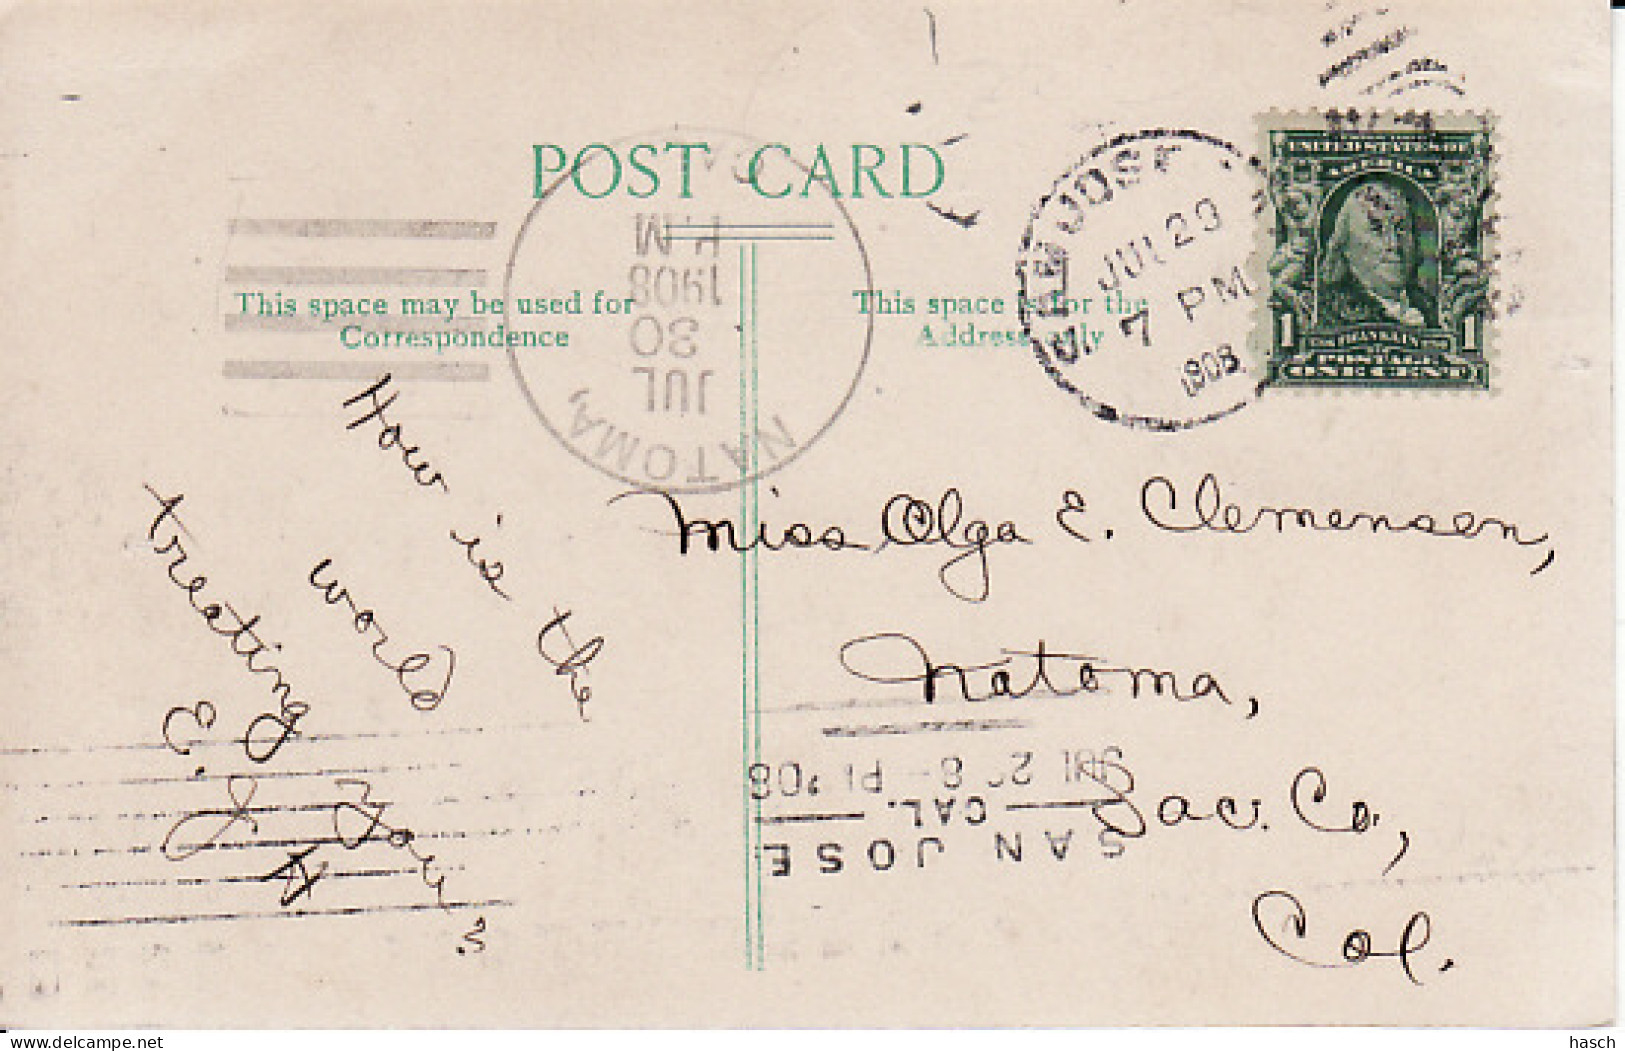 POST CARD
This space may be used for
Correspondence
This space is for the
Address only
NATOMA,
JUL
30
1908
P.M
CA
JOSE
JUL 29
7 PM
1908
UNITED STATES OF
AMERICA
1 FRANKLIN 1
POSTAGE
ONE CENT
How is the
world
treating
you?
E. J. H.
Miss Olga E. Clemensen,
Natoma,
Sac. Co.,
Cal.
SAN JOSE
CAL.
JUL 2 8-P '08
hasch